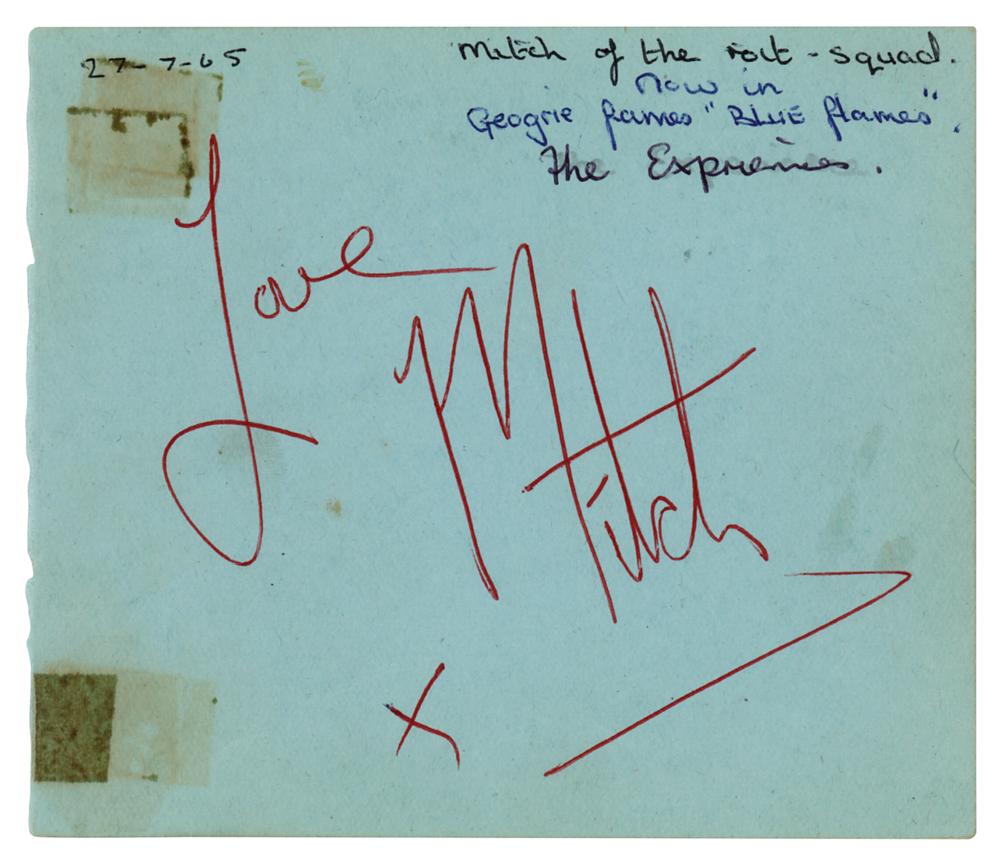 27-7-65
Mitch of the riot-squad.
Now in
Geogrie fames "BLUE flames".
The Expriences.
Love
Mitch
x